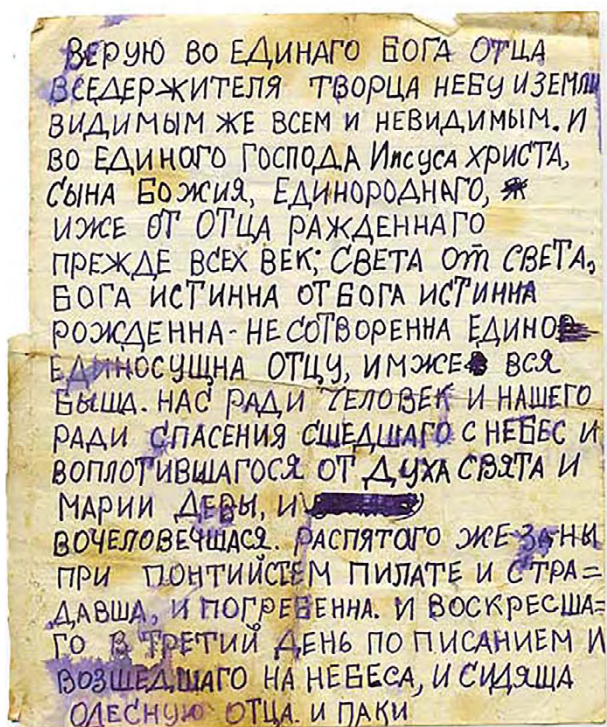 ВЕРУЮ ВО ЕДИНАГО БОГА ОТЦА
ВСЕДЕРЖИТЕЛЯ ТВОРЦА НЕБУ И ЗЕМЛИ
ВИДИМЫМ ЖЕ ВСЕМ И НЕВИДИМЫМ. И
ВО ЕДИНОГО ГОСПОДА Иисуса ХРИСТА,
СЫНА БОЖИЯ, ЕДИНОРОДНАГО,
ИЖЕ ОТ ОТЦА РАЖДЕННАГО
ПРЕЖДЕ ВСЕХ ВЕК; СВЕТА От СВЕТА,
БОГА ИСТИННА ОТ БОГА ИСТИННА
РОЖДЕННА - НЕ СОТВОРЕННА ЕДИНО
ЕДИНОСУЩНА ОТЦУ, ИМЖЕ ВСЯ
БЫША. НАС РАДИ ЧЕЛОВЕК И НАШЕГО
РАДИ СПАСЕНИЯ СШЕДШАГО С НЕБЕС И
ВОПЛОТИВШАГОСЯ ОТ ДУХА СВЯТА И
МАРИИ ДЕВЫ, И
ВОЧЕЛОВЕЧШАСЯ. РАСПЯТОГО ЖЕ ЗА НЫ
ПРИ ПОНТИЙСТЕМ ПИЛАТЕ И СТРА=
ДАВША, И ПОГРЕБЕННА. И ВОСКРЕСША=
ГО В ТРЕТИЙ ДЕНЬ ПО ПИСАНИЕМ И
ВОЗШЕДШАГО НА НЕБЕСА, И СИДЯЩА
ОДЕСНУЮ ОТЦА. И ПАКИ